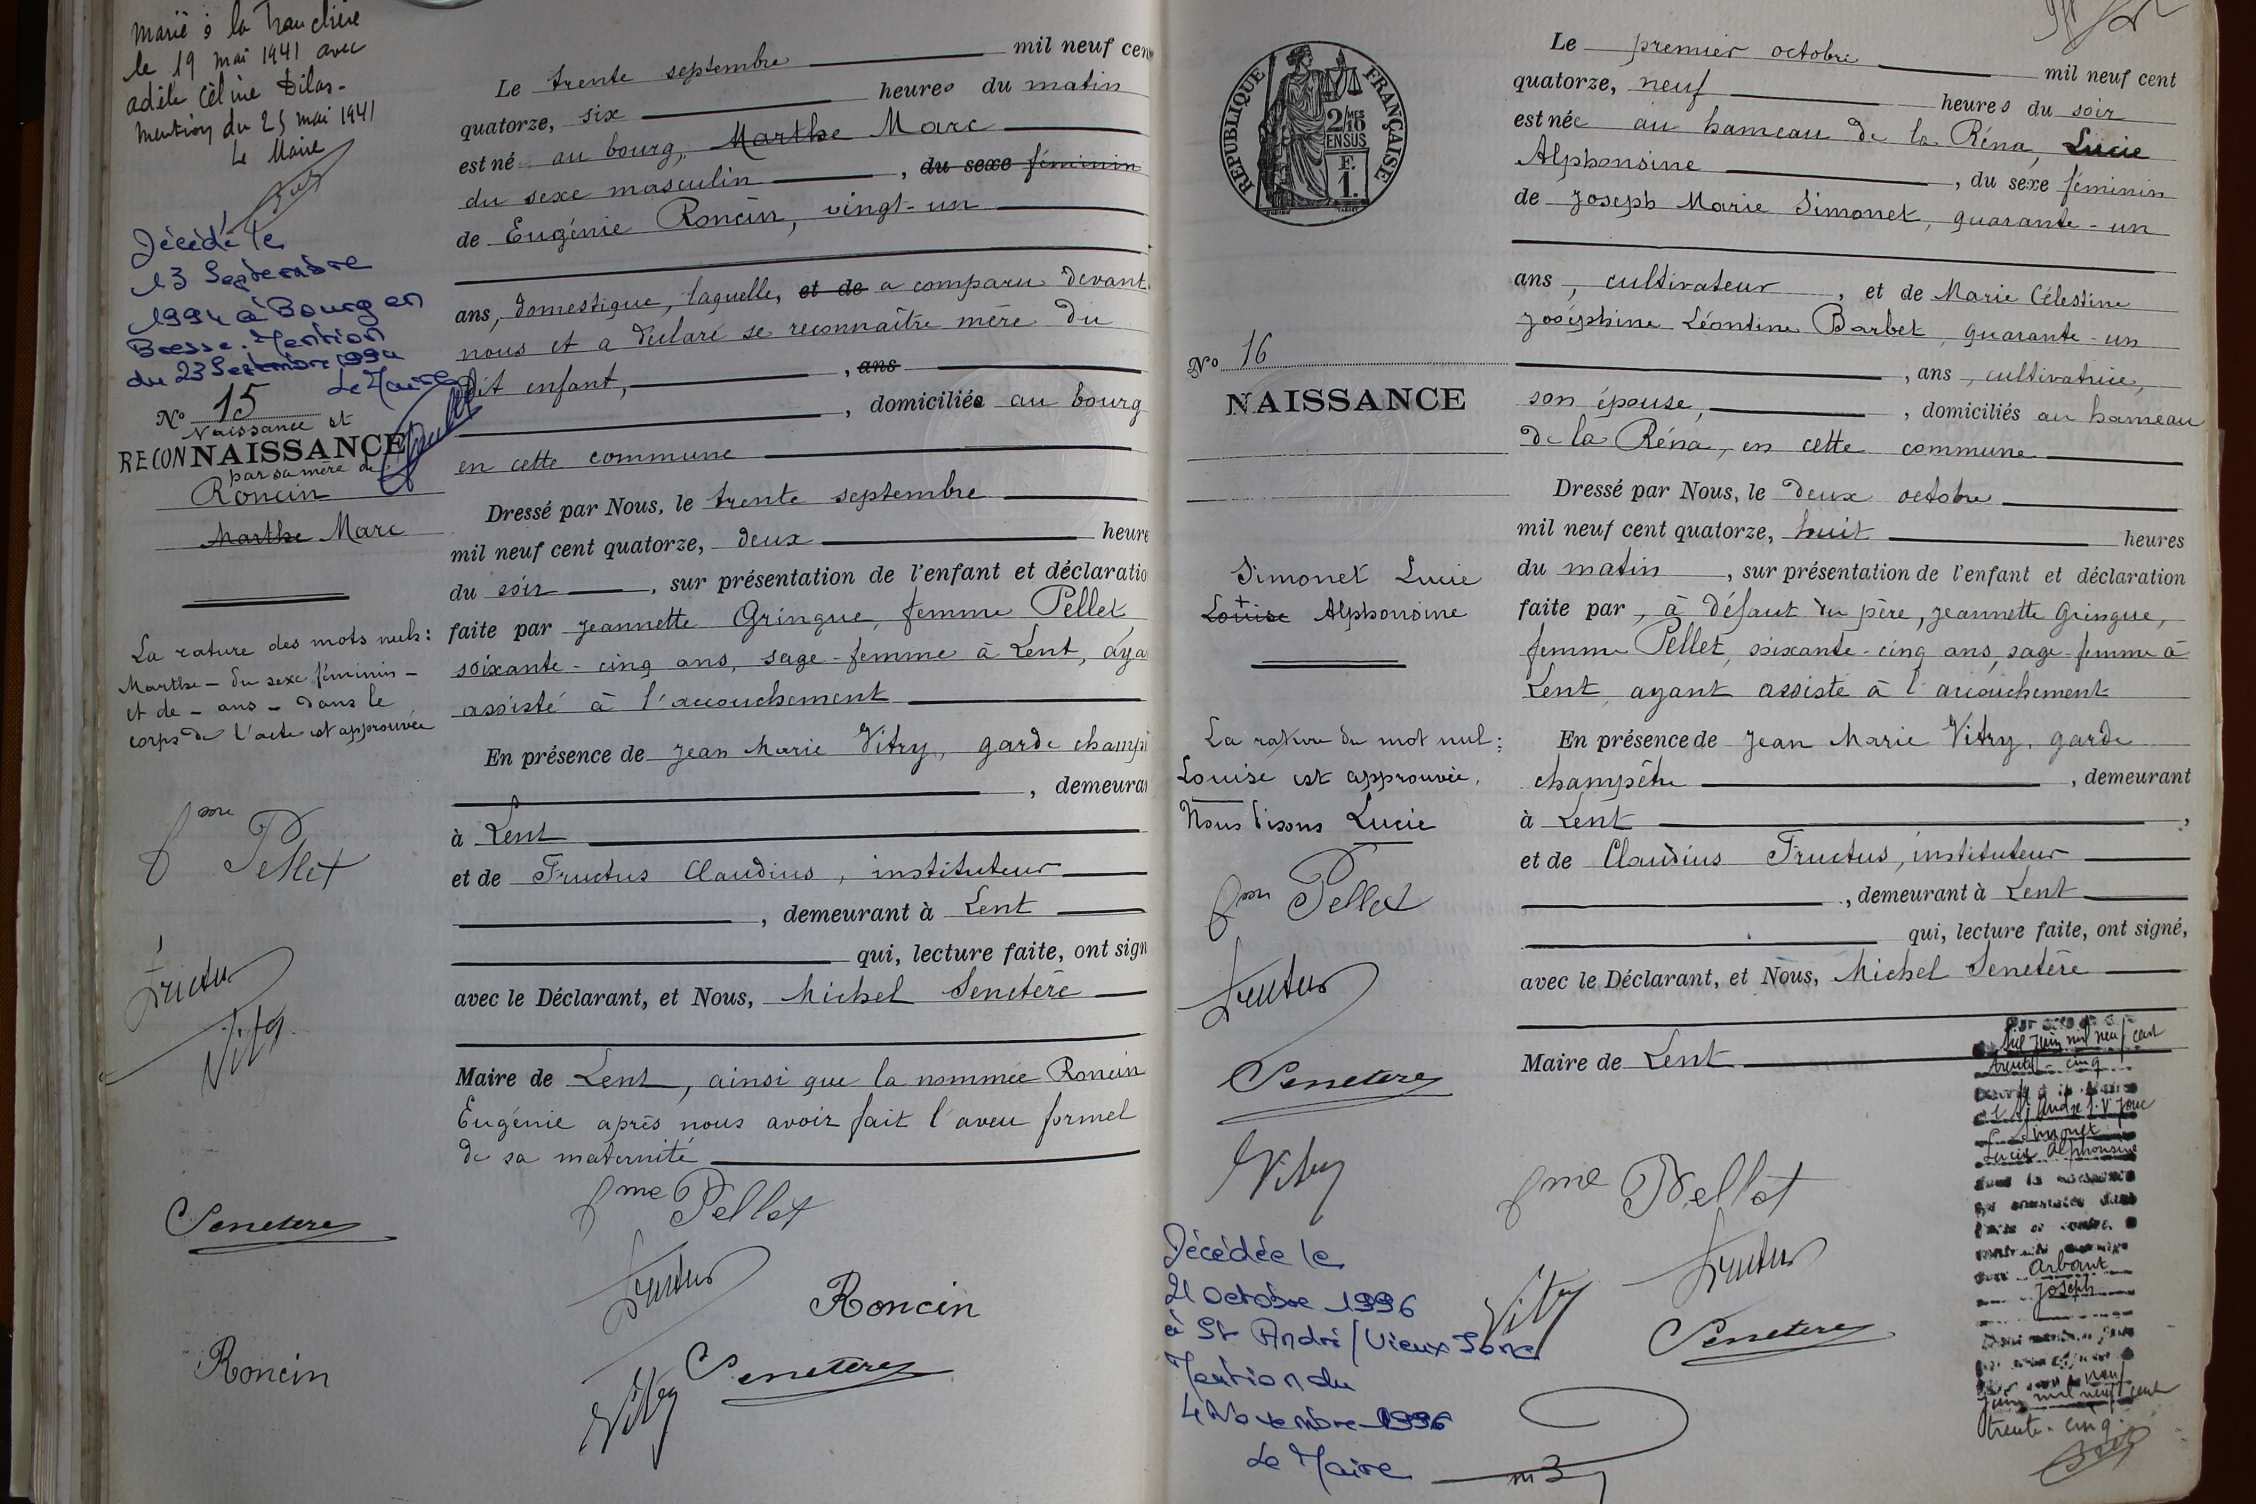 Marié à la Tranclière
le 19 mai 1941 avec
adèle Céline Dilas-
mention du 25 mai 1941
Le Maire
Décédé le
13 Septembre
1994 à Bourg en
Bresse. Mention
du 23 Septembre 1994
Le Maire
No 15
Naissance et
RECONNAISSANCE
par sa mère de
Roncin
Marthe Marc
La rature des mots nuls:
Marthe - du sexe féminin -
et de - ans - dans le
corps de l'acte est approuvée
fme Pellet
Fructus
Vitry
Senetère
Roncin
Le trente septembre mil neuf cen
quatorze, six heures du matin
est né au bourg, Marthe Marc
du sexe masculin, du sexe féminin
de Eugénie Roncin, vingt-un
ans, domestique, laquelle, et de a comparu devant
nous et a déclaré se reconnaître mère du
dit enfant, , ans
, domiciliée au bourg
en cette commune
Dressé par Nous, le trente septembre
mil neuf cent quatorze, deux heure
du soir, sur présentation de l'enfant et déclaratio
faite par Jeannette Gringue, femme Pellet
soixante-cinq ans, sage-femme à Lent, aya
assisté à l'accouchement
En présence de Jean Marie Vitry, garde champ
, demeura
à Lent
et de Fructus Claudius, instituteur
, demeurant à Lent
qui, lecture faite, ont sign
avec le Déclarant, et Nous, Michel Senetère
Maire de Lent, ainsi que la nommée Roncin
Eugénie après nous avoir fait l'aveu formel
de sa maternité
fme Pellet
Fructus
Roncin
Vitry Senetère
RÉPUBLIQUE FRANÇAISE
2/10 MES
EN SUS
F.
1.
No 16
NAISSANCE
Simonet Lucie
Louise Alphonsine
La rature du mot nul:
Louise est approuvée.
Nous disons Lucie
fme Pellet
Fructus
Senetère
Vitry
Décédée le
21 Octobre 1996
à St André/Vieux Jonc
Mention du
4 Novembre 1996
Le Maire
Le premier octobre mil neuf cent
quatorze, neuf heures du soir
est née au hameau de la Réna, Lucie
Alphonsine, du sexe féminin
de Joseph Marie Simonet, quarante-un
ans, cultivateur, et de Marie Célestine
Joséphine Léontine Barbet, quarante-un
, ans, cultivatrice,
son épouse, , domiciliés au hameau
de la Réna, en cette commune
Dressé par Nous, le deux octobre
mil neuf cent quatorze, huit heures
du matin, sur présentation de l'enfant et déclaration
faite par, à défaut du père, Jeannette Gringue,
femme Pellet, soixante-cinq ans, sage-femme à
Lent, ayant assisté à l'accouchement
En présence de Jean Marie Vitry, garde
champêtre, demeurant
à Lent,
et de Claudius Fructus, instituteur
, demeurant à Lent
qui, lecture faite, ont signé,
avec le Déclarant, et Nous, Michel Senetère
Maire de Lent
fme Pellet
Fructus
Vitry
Senetère
Par acte
juin mil neuf cent
trente-cinq
St André s. V. Jonc
Simonet
Lucie Alphonsine
avec Arbant
Joseph
neuf
Juin mil neuf cent
trente-cinq